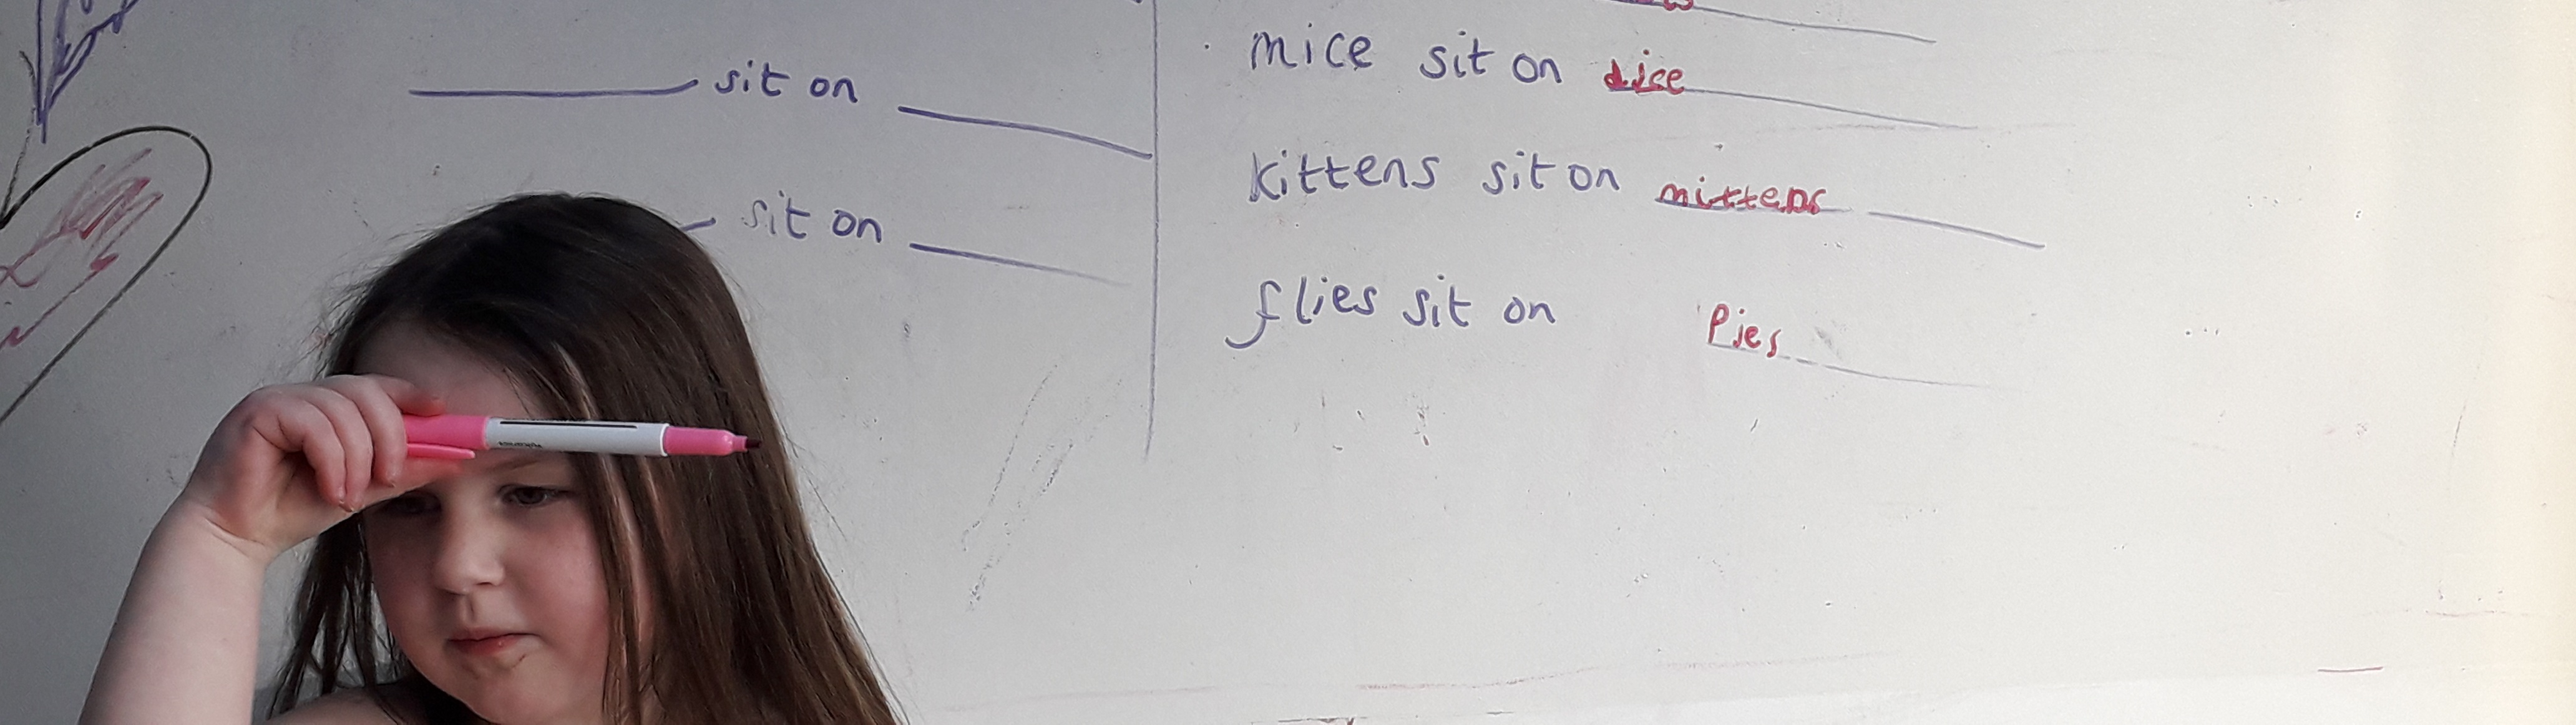 sit on
sit on
mice sit on dice
kittens sit on mittens
flies sit on Pies